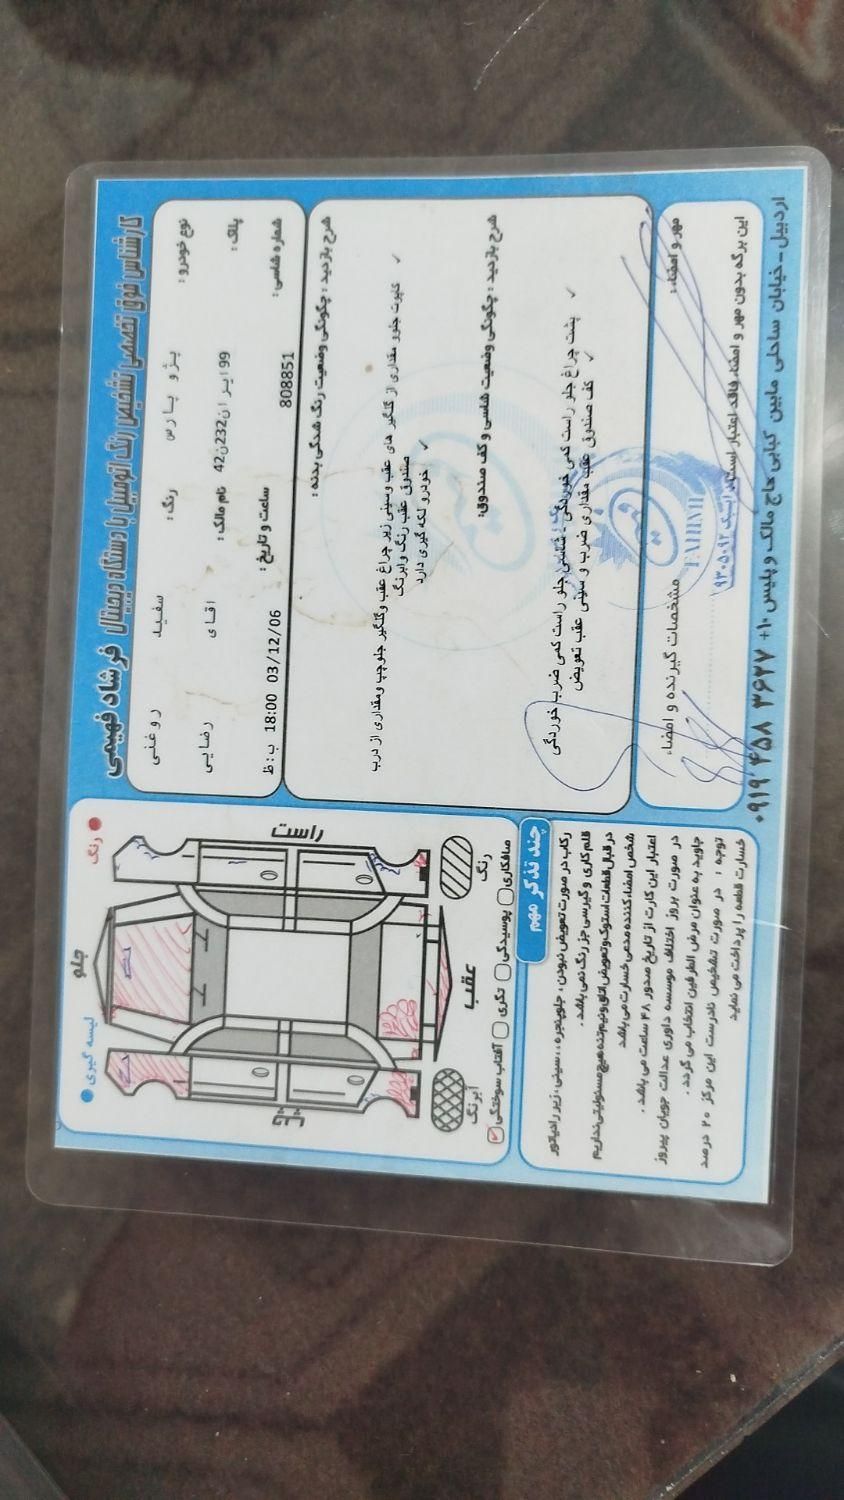 کارشناس فوق تخصصی تشخیص رنگ اتومبیل با دستگاه دیجیتال فرشاد فهیمی
نوع خودرو : پژو پارس رنگ : سفید روغنی
پلاک : 99 ایران 232ن42 نام مالک : اقای رضایی
شماره شاسی : 808851 ساعت و تاریخ : 03/12/06 18:00 ب:ظ
شرح بازدید : چگونگی وضعیت رنگ شدگی بدنه :
✓ کاپوت جلوو مقداری از گلگیر های عقب وسینی زیر چراغ عقب وگلگیر جلوچپ ومقداری از درب
صندوق عقب رنگ وابرنگ
✓ خودرو لکه گیری دارد
شرح بازدید : چگونگی وضعیت شاسی و کف صندوق:
✓ پشت چراغ جلو راست کمی خوردگی - شاسی جلو راست کمی ضرب خوردگی
✓ کف صندوق عقب مقداری ضرب و سینی عقب تعویض
مهر و امضاء : مشخصات گیرنده و امضاء
FAHIMI
این برگه بدون مهر و امضاء فاقد اعتبار است.
اردبیل - خیابان ساحلی مابین کبابی حاج مالک و پلیس ۱۰+ ۳۶۲۷ ۴۵۸ ۰۹۱۹
رنگ
جلو
لیسه گیری
راست
چپ
عقب
رنگ
آبرنگ
صافکاری
پوسیدگی
تگری
آفتاب سوختگی
چند تذکر مهم
رکاب در صورت تعویض نبودن ، جلوپنجره ، سینی ، زیر رادیاتور
قلم کاری و گیرسی جز رنگ نمی باشد .
در قبال قطعات استوک و تعویض اتاق و نیم زنده هیچ مسئولیتی نداریم
شخص امضاء کننده مدعی خسارت می باشد
اعتبار این کارت از تاریخ صدور ۴۸ ساعت می باشد .
در صورت بروز اختلاف موسسه داوری عدالت جویان پیروز
جاوید به عنوان مرض الطرفین انتخاب می گردد .
توجه : در صورت تشخیص نادرست این مرکز ۲۰ درصد
خسارت قطعه را پرداخت می نماید